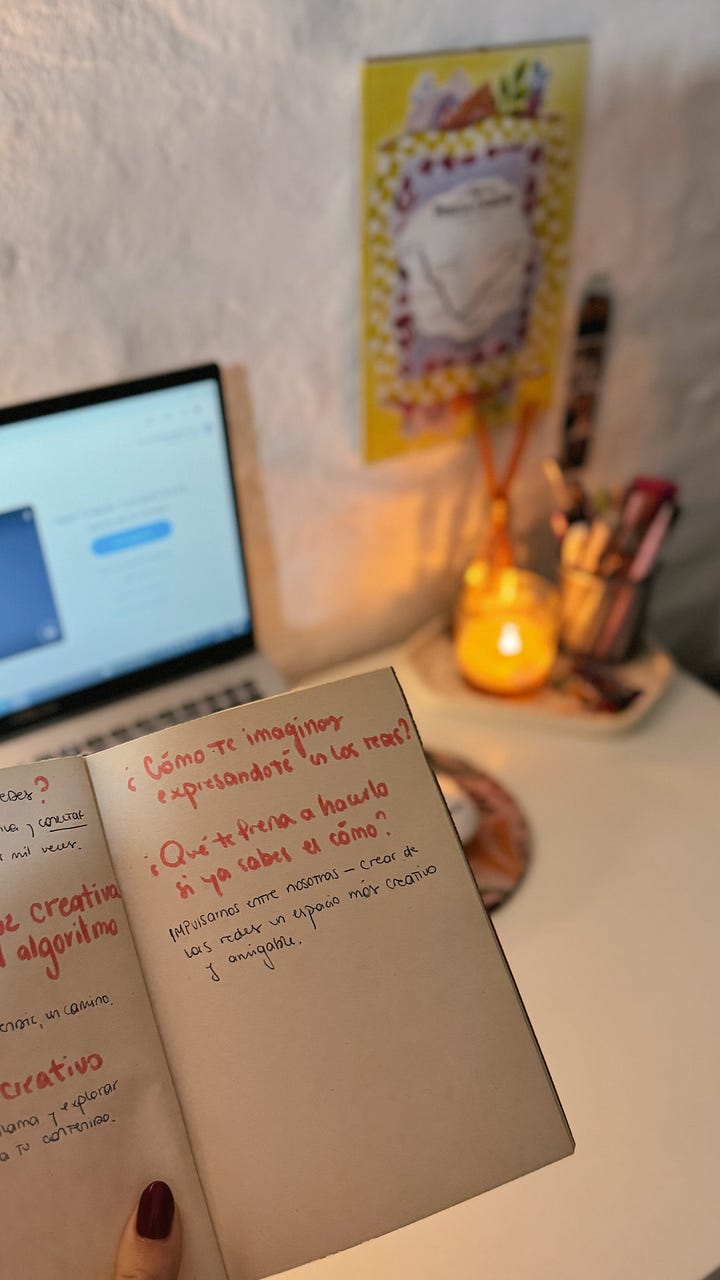 edes?
iva, y conectar
s mil veces.
uz creativa
l algoritmo
ensic, un camino.
creativo
lama y explorar
a tu contenido.
¿Cómo te imaginas
expresandote en las redes?
¿Qué te frena a hacerlo
si ya sabes el cómo?
IMPulsarnos entre nosotras - crear de
las redes un espacio más creativo
y amigable.